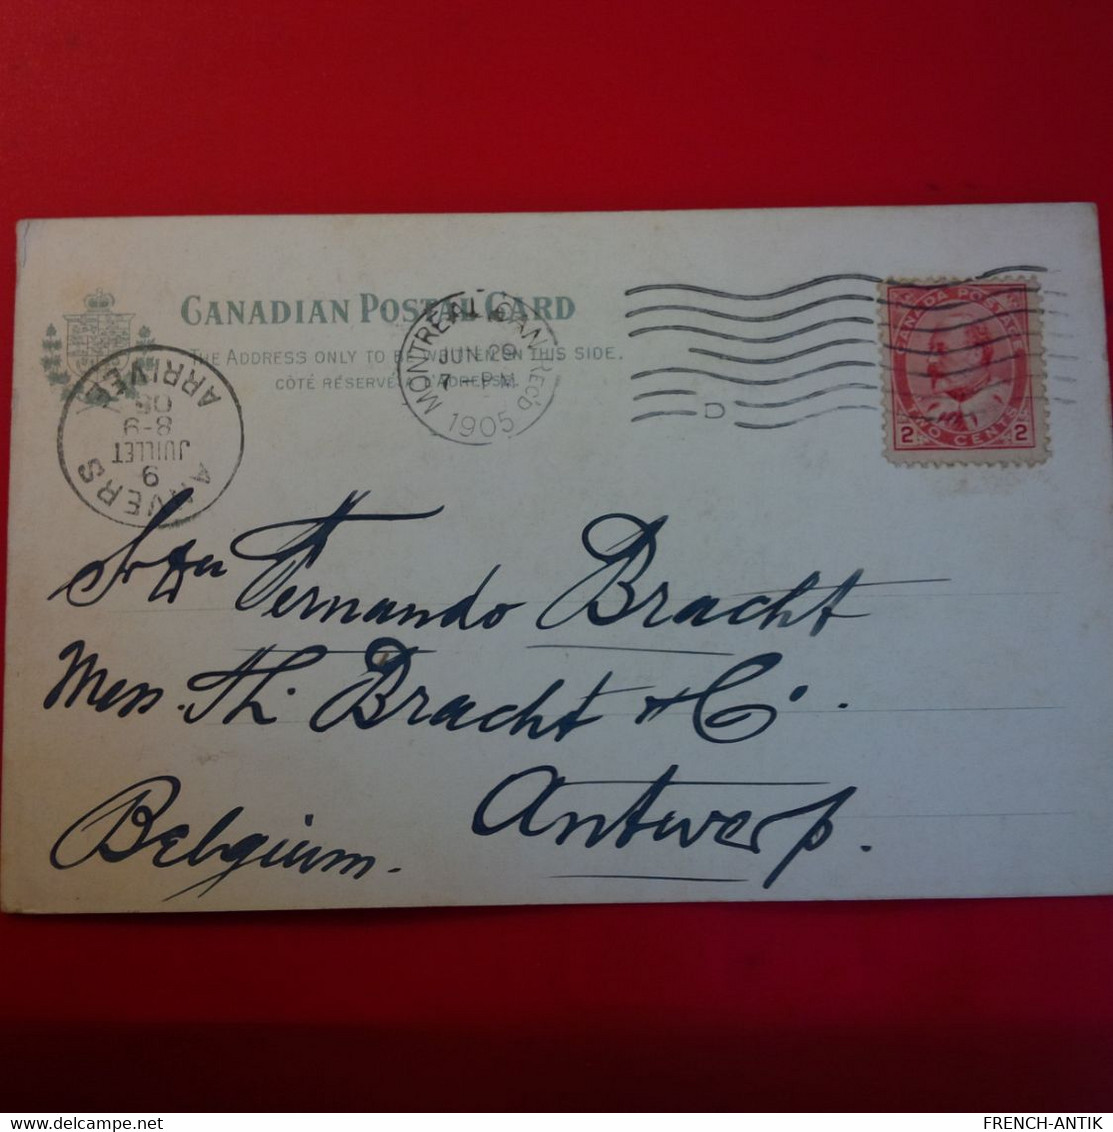 CANADIAN POSTAL CARD
THE ADDRESS ONLY TO BE WRITTEN ON THIS SIDE.
CÔTÉ RÉSERVÉ A L'ADRESSE.
MONTREAL CAN. REC'D
JUN 29
7 - PM
1905
D
CANADA POSTAGE
2 TWO CENTS 2
ANVERS
9
JUILLET
8-9
05
ARRIVEE
Fernando Bracht
Mess. Th. Bracht & Co.
Antwerp.
Belgium.
FRENCH-ANTIK